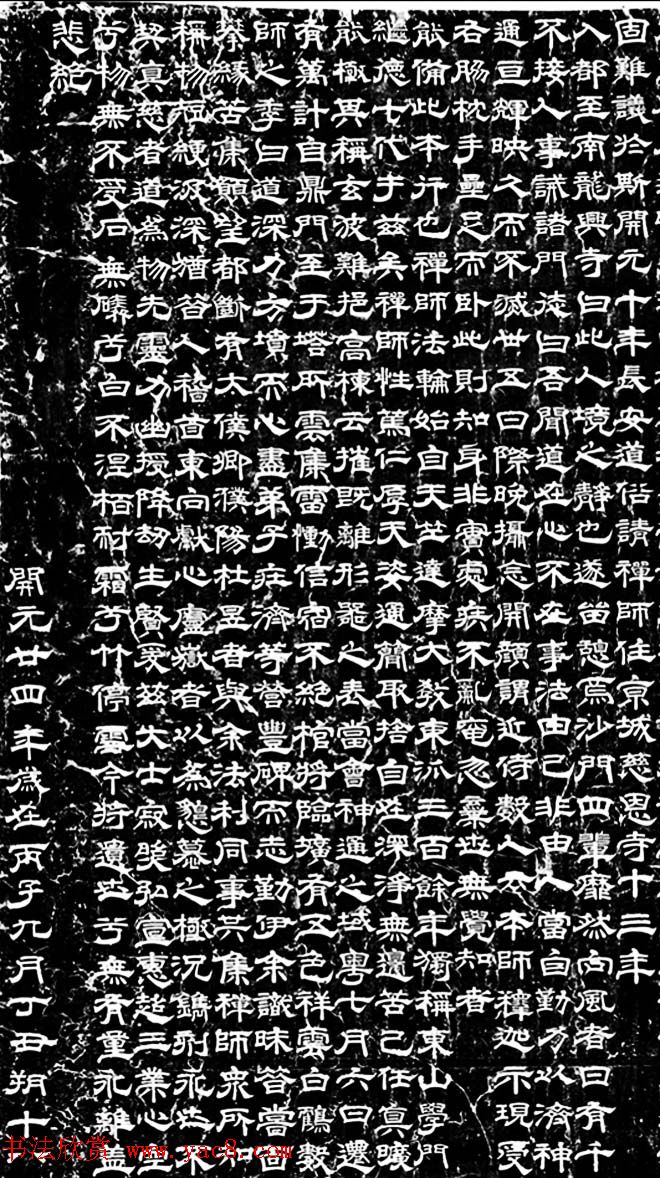 固難議於斯開元十年長安道俗請禪師住京城慈恩寺十三年
入都至南龍興寺曰此人境之靜也遂留憩焉沙門四輩靡然向風者日有千
不接人事誡諸門徒曰吾聞道在心不在事法由己非由人當自勤力以濟神
通亘輝映久而不滅廿五日際晚攝念開顏謂近侍數人本師釋迦示現受
右脇枕手壘足而卧此則知身非實處疾不亂奄忽棄世無覺知者
能備此本行也禪師法輪始自天竺達摩大教東派三百餘年獨稱東山學門
繼德七代于茲矣禪師性篤仁厚天姿邁簡取捨自在深淨無邊苦己任真曠
能極畏稱玄波難挹高棟云摧既離形器之表當會神通之域粵七月六日遷
有萬計自鼎門至于塔所雲集雷慟信宿不絕棺將臨壙有五色祥雲白鶴數
師之季曰道深力方墳而心盡弟子莊濟等營豐碑而志勤伊余識昧昔嘗面
攀緣苦集願望都斷有太僕卿濮陽杜昱者與余法利同事共集禪師眾所知
稱物短綆汲深猶昔人稽首東向獻心廬嶽者以為懇慕之極況鐫刊永世不
契真慈者道為物先靈力幽授降劫生賢爰茲大士寂默弘宣惠超三業心空
兮物無不受石無磷兮白不涅栢耐霜兮竹停雪今將遺世兮無有量永離蓋
悲絕
開元廿四年歲在丙子九月丁丑朔十
书法欣赏 www.yac8.com